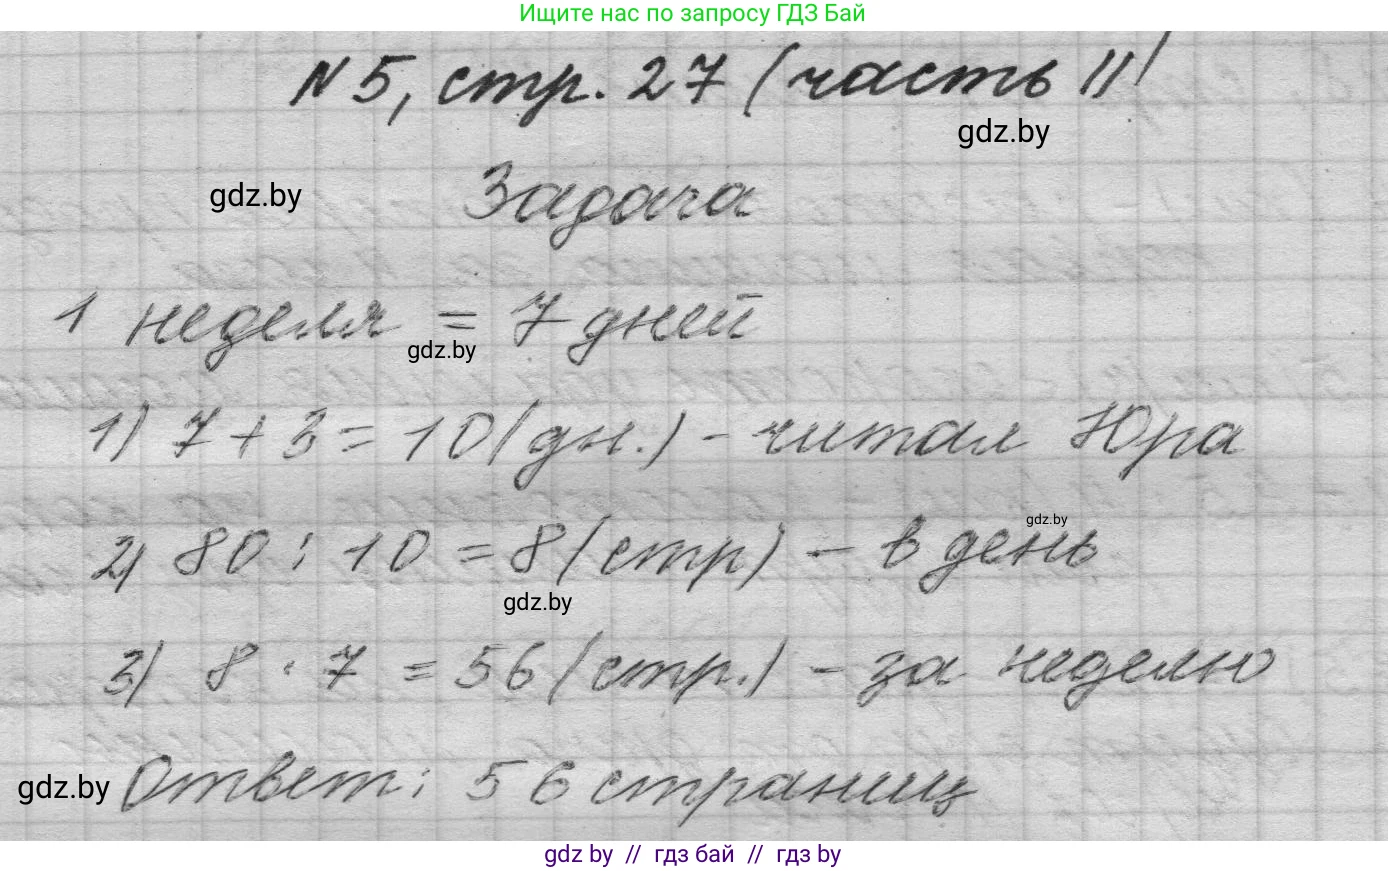 Ищите нас по запросу ГДЗ Бай
N 5, стр. 27 (часть II)
gdz.by
gdz.by
Задача
1 неделя = 7 дней
gdz.by
1) 7 + 3 = 10 (дн.) - читал Юра
gdz.by
2) 80 : 10 = 8 (стр) - в день
gdz.by
3) 8 · 7 = 56 (стр.) - за неделю
gdz.by
Ответ: 56 страниц
gdz by // гдз бай // гдз by